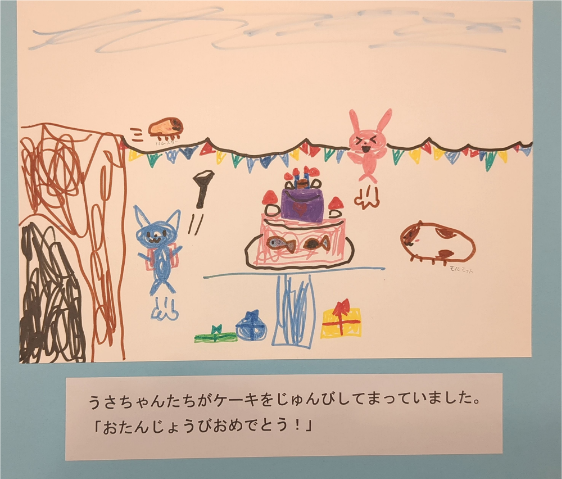 うさちゃんたちがケーキをじゅんびしてまっていました。
「おたんじょうびおめでとう！」